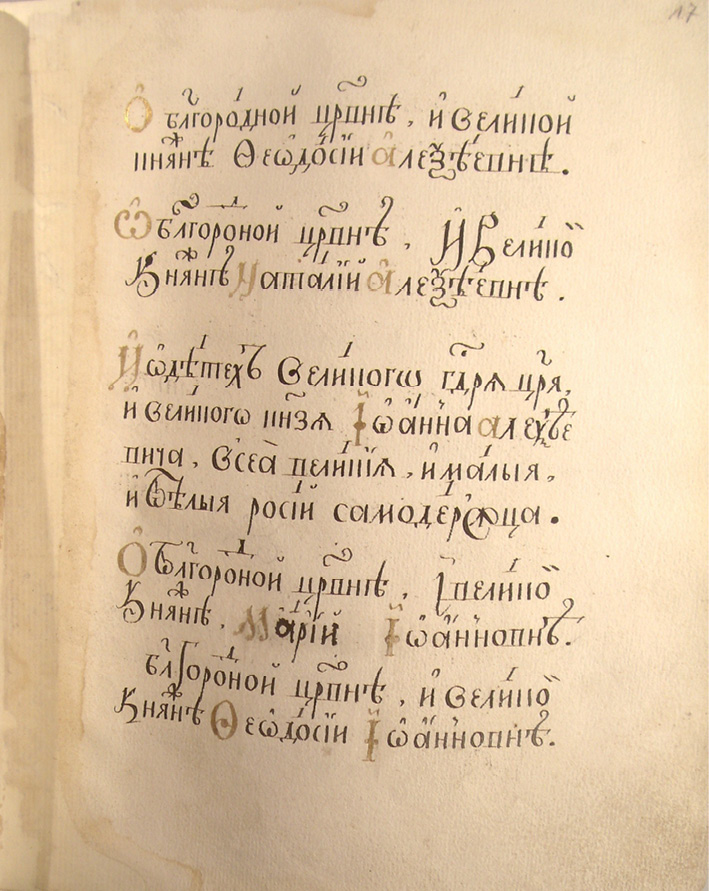 17
О бл҃городной цр҃внѣ, и великой
княжнѣ Ѳеѡдосїи алеѯѣевнѣ.
Ѡ бл҃городной цр҃внѣ, И Великой
Княжнѣ Наталїи алеѯѣевнѣ.
И ѡ дѣтехъ великогѡ гдр҃ѧ цр҃ѧ,
и великогѡ кнз҃ѧ Їѡанна алеѯѣе
вича, всеа великїѧ, и малыѧ,
и бѣлыѧ росїи самодержца.
О бл҃городной цр҃внѣ, I великой
Княжнѣ, Марїи Їѡанновнѣ.
бл҃городной цр҃внѣ, и великой
Княжнѣ Ѳеѡдосїи Їѡанновнѣ.